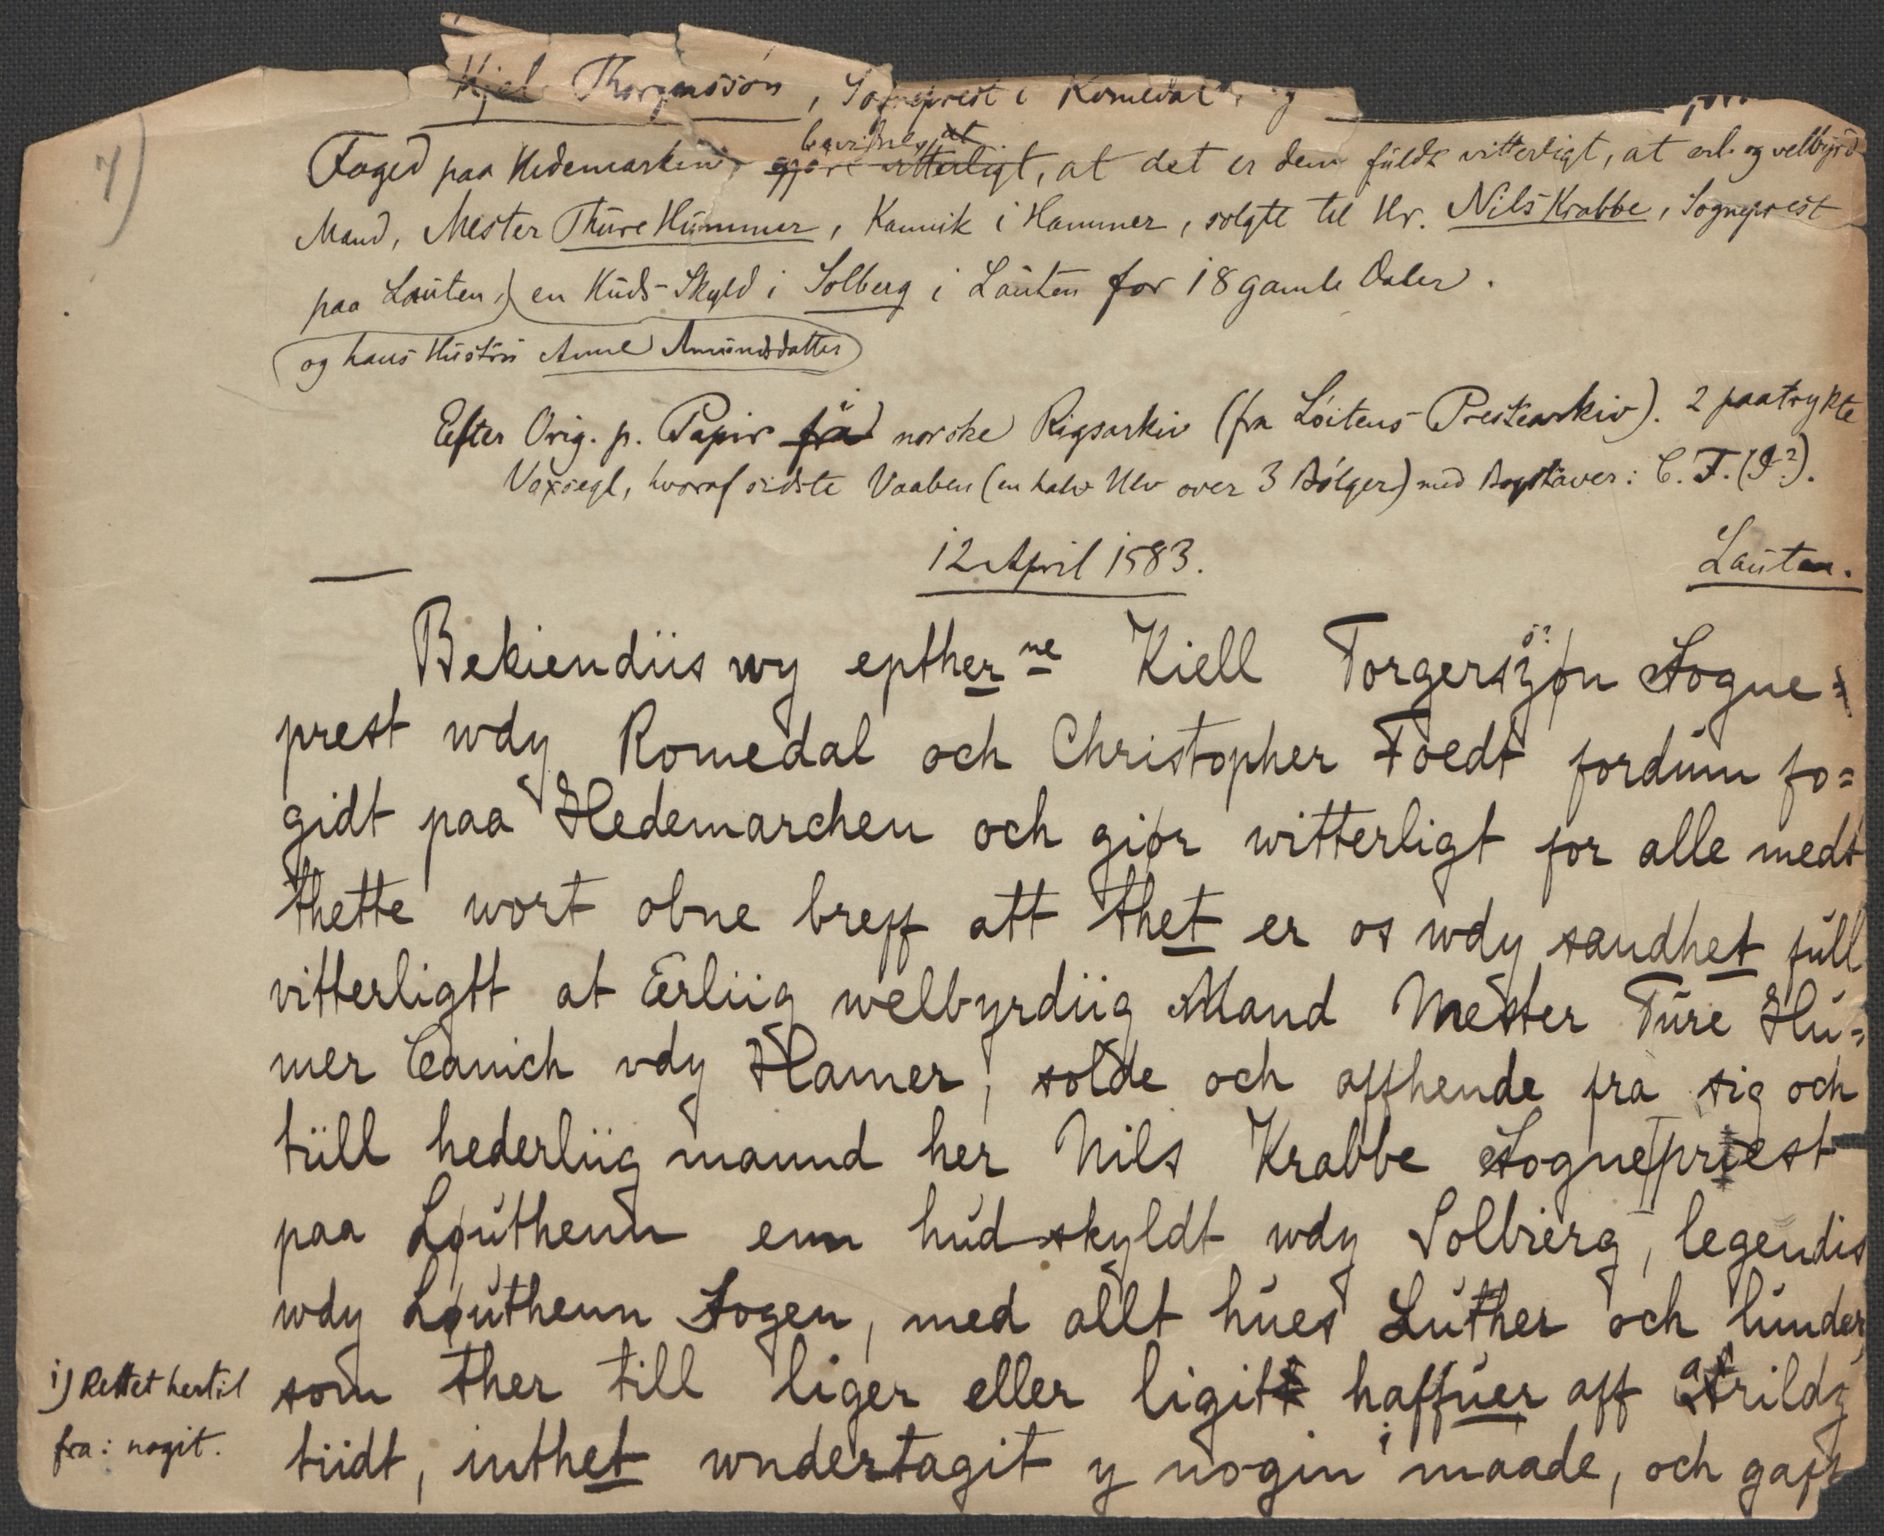 7)
Kjel Thorgenssøn, Sogneprest i Romedal
Foged paa Hedemarken, gjøre vitterligt, bevidne, at det er dem fuldt vitterligt, at erl. og velbyrd.
Mand, Mester Thure Hummer, Kannik i Hammer, solgte til Hr. Nils Krabbe, Sogneprest
paa Lauten, en Huds-Skyld i Solberg i Lauten for 18 gamle Daler.
og hans Hustru Anne Amundsdatter
Efter Orig. p. Papir i norske Rigsarkiv (fra Løitens Prestearkiv). 2 paatrykte
Voxsegl, hvoraf sidste Vaaben (en halv Ulv over 3 Bølger) med Bogstaver: C. F. (I?).
— 12 April 1583. Lauten.
Bekiendiis wy epther ne Kiell Torgerszøn Sogne=
prest wdy Romedal och Christopher Foedt fordum fo=
gidt paa Hedemarchen och giør witterligt for alle medt
thette wort obne breff att thet er os wdy sandhet full
vitterligtt at Erliig welbyrdiig Mand Mester Ture Hu=
mer Canich vdy Hamer, solde och affhende fra sig och
tiill hederliig mannd her Nils Krabbe Sognepriest
paa Løuthenn enn hud skyldt wdy Solbierg, legendis
wdy Løuthenn Sogen, med allt hues Luther och lunder,
som ther till liger eller ligitt haffuer aff arildz
tiidt, inthet wndertagit y nogin maade, och gaff
1) Rettet hertil
fra: nogit.